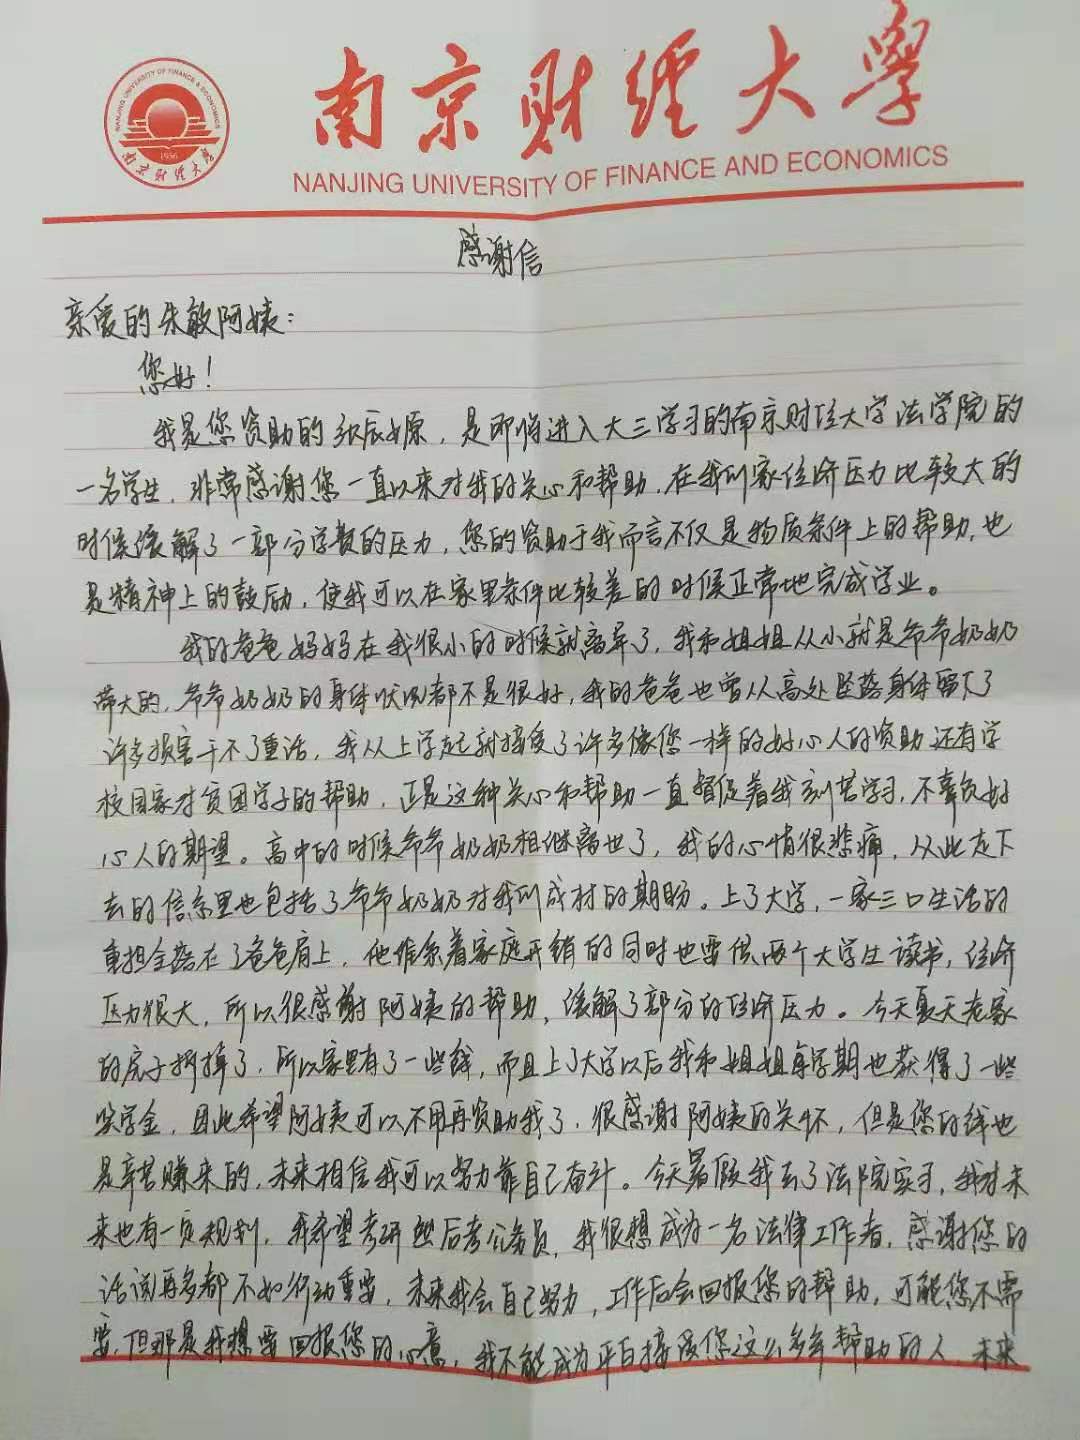 南京财经大学
NANJING UNIVERSITY OF FINANCE AND ECONOMICS
NANJING UNIVERSITY OF FINANCE & ECONOMICS
1956
南京财经大学
感谢信
亲爱的朱敏阿姨：
您好！
我是您资助的张辰嫄，是即将进入大三学习的南京财经大学法学院的
一名学生，非常感谢您一直以来对我的关心和帮助，在我们家经济压力比较大的
时候缓解了一部分学费的压力，您的资助于我而言不仅是物质条件上的帮助，也
是精神上的鼓励，使我可以在家里条件比较差的时候正常地完成学业。
我的爸爸妈妈在我很小的时候就离异了，我和姐姐从小就是爷爷奶奶
带大的，爷爷奶奶的身体状况都不是很好，我的爸爸也曾从高处坠落身体留下了
许多损害干不了重活，我从上学起就接受了许多像您一样的好心人的资助还有学
校国家对贫困学子的帮助，正是这种关心和帮助一直督促着我刻苦学习，不辜负好
心人的期望。高中的时候爷爷奶奶相继离世了，我的心情很悲痛，从此走下
去的信念里也包括了爷爷奶奶对我们成材的期盼。上了大学，一家三口生活的
重担全落在了爸爸肩上，他维系着家庭开销的同时也要供两个大学生读书，经济
压力很大，所以很感谢阿姨的帮助，缓解了部分的经济压力。今天夏天老家
的房子拆掉了，所以家里有了一些钱，而且上了大学以后我和姐姐每学期也获得了一些
奖学金，因此希望阿姨可以不用再资助我了，很感谢阿姨的关怀，但是您的钱也
是辛苦赚来的，未来相信我可以努力靠自己奋斗。今天暑假我去了法院实习，我对未
来也有一定规划，我希望考研然后考公务员，我很想成为一名法律工作者，感谢您的
话说再多都不如行动重要，未来我会自己努力，工作后会回报您的帮助，可能您不需
要，但那是我想要回报您的心意，我不能成为平白接受您这么多年帮助的人，未来